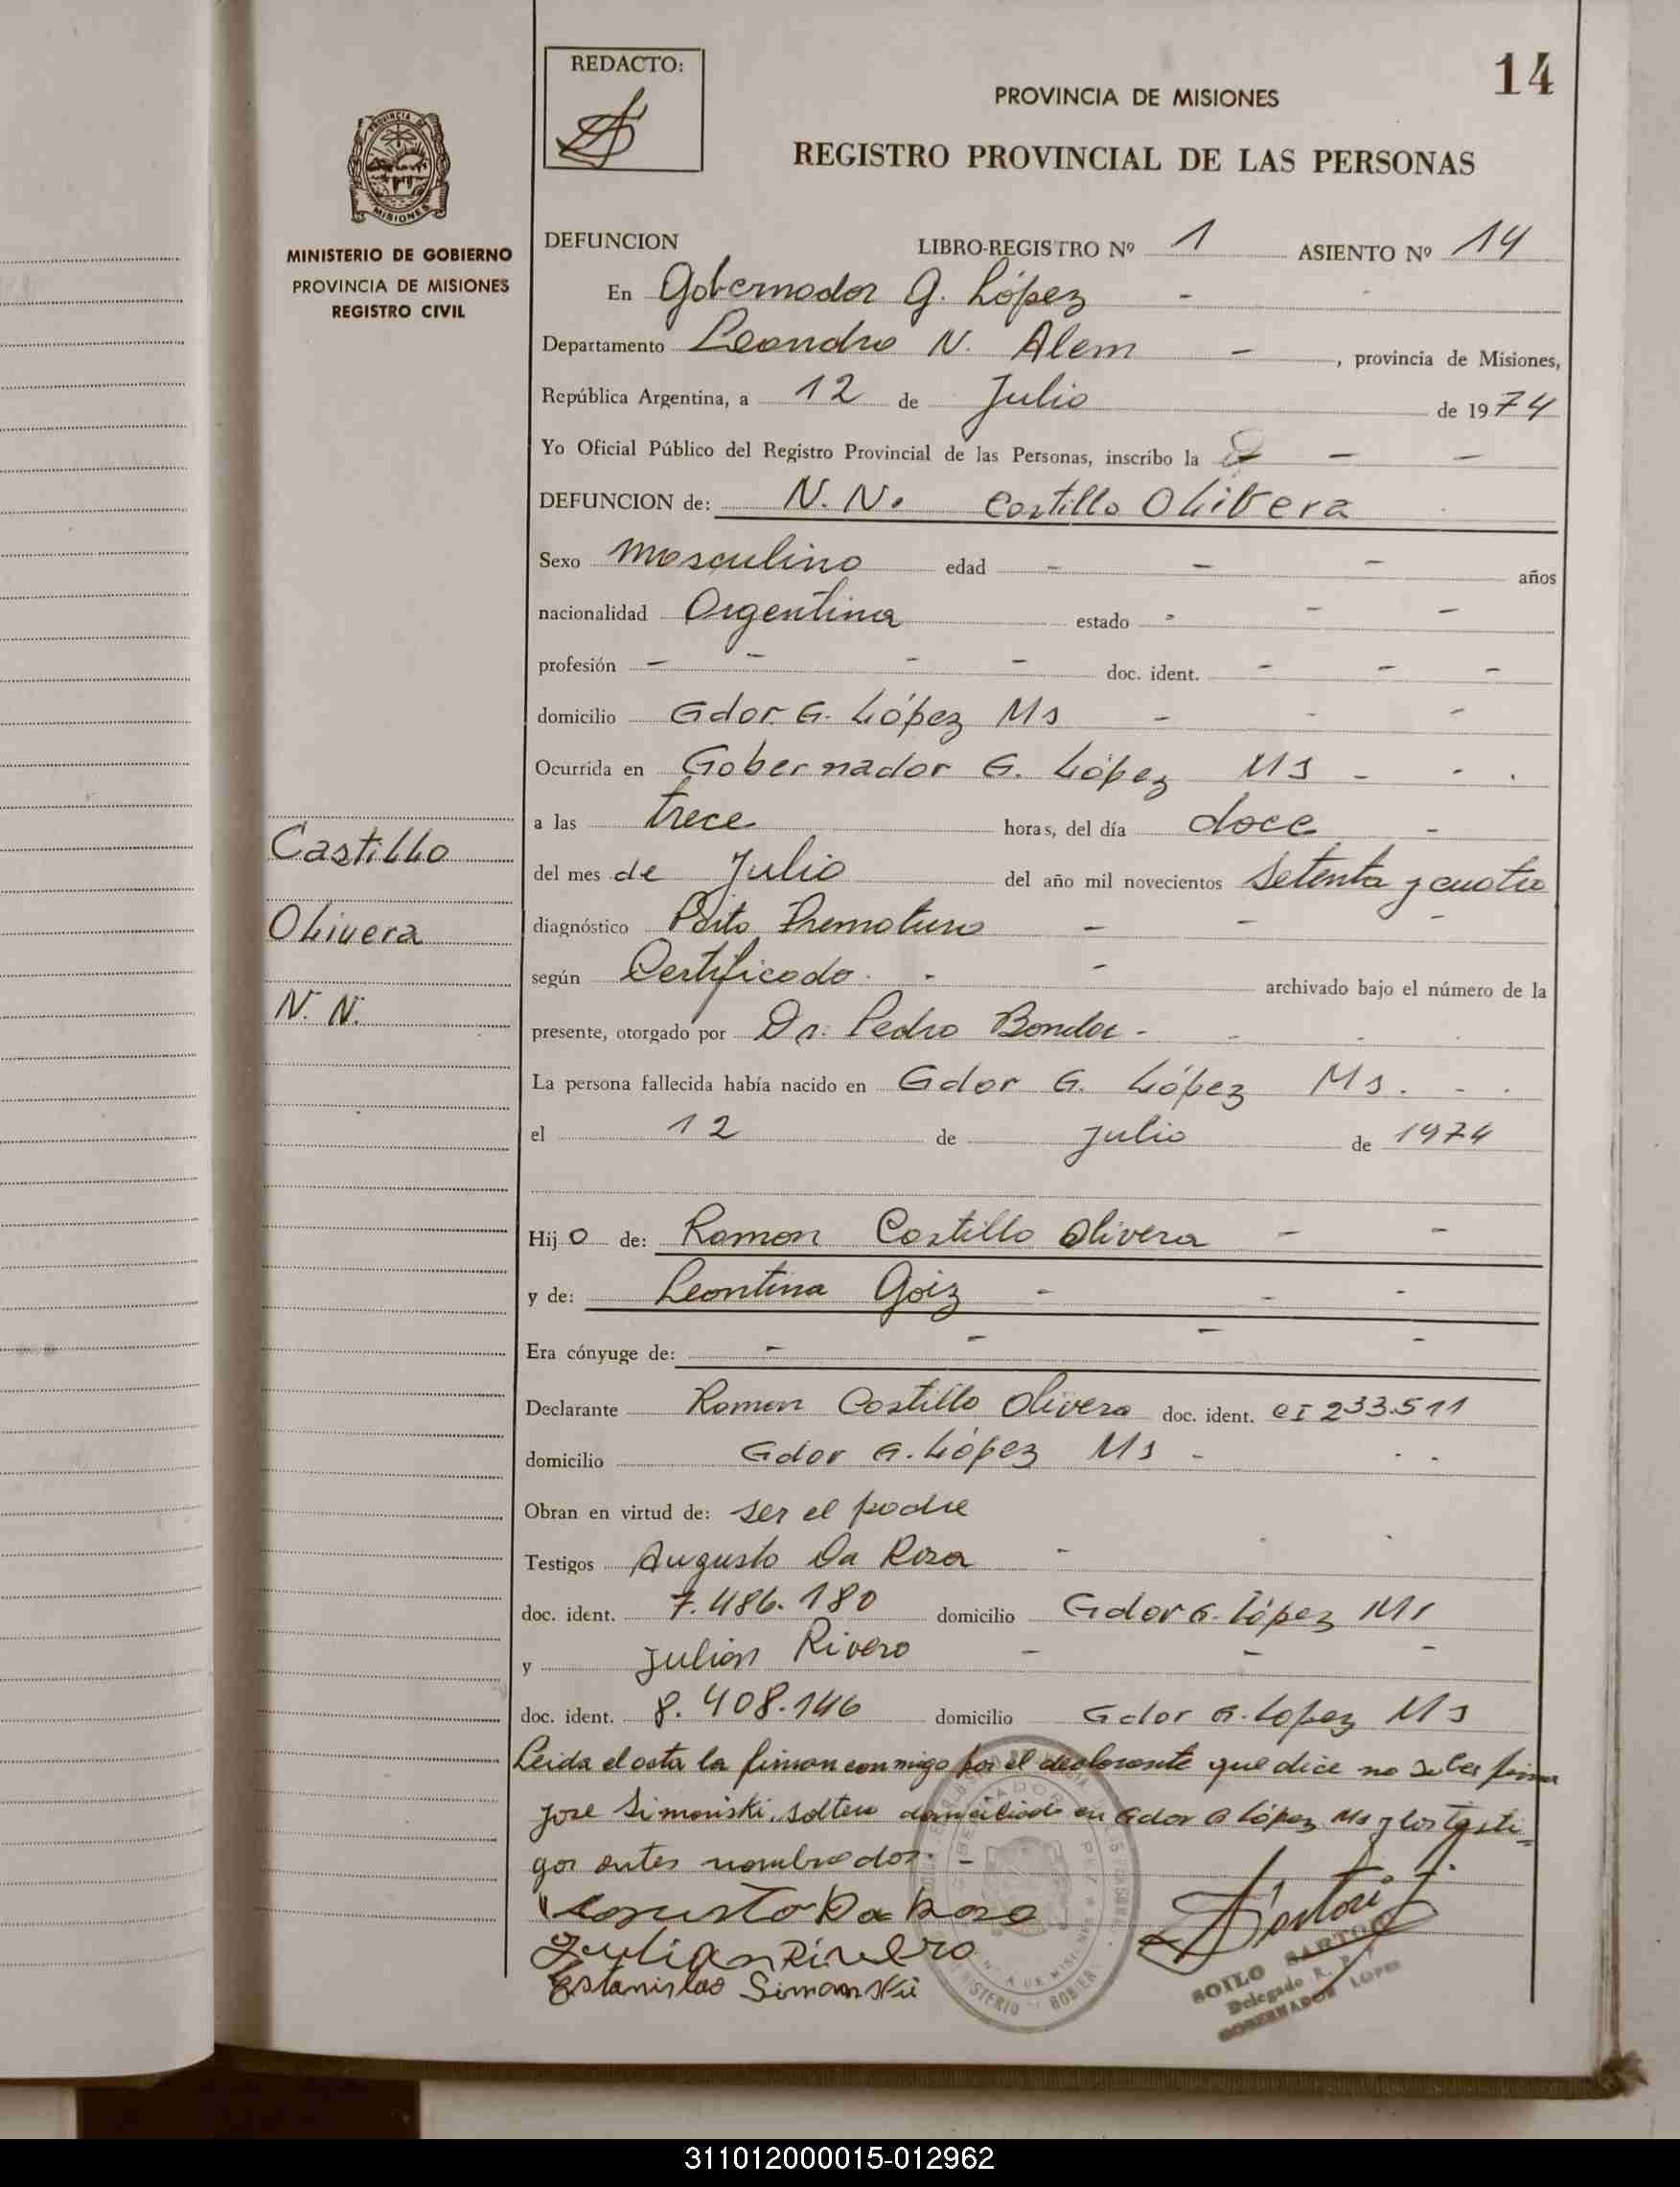 14
REDACTO:
PROVINCIA DE MISIONES
REGISTRO PROVINCIAL DE LAS PERSONAS
PROVINCIA DE
MISIONES
MINISTERIO DE GOBIERNO
PROVINCIA DE MISIONES
REGISTRO CIVIL
Castillo
Olivera
N. N.
DEFUNCION LIBRO-REGISTRO Nº 1 ASIENTO Nº 14
En Gobernador G. López -
Departamento Leandro N. Alem - , provincia de Misiones,
República Argentina, a 12 de Julio de 1974
Yo Oficial Público del Registro Provincial de las Personas, inscribo la - -
DEFUNCION de: N. N. Castillo Olivera
Sexo Masculino edad - - - años
nacionalidad Argentina estado - - -
profesión - - - - doc. ident. - - -
domicilio Gdor. G. López Ms - - -
Ocurrida en Gobernador G. López Ms - - .
a las trece horas, del día doce -
del mes de Julio del año mil novecientos setenta y cuatro
diagnóstico Parto Prematuro - - -
según Certificado - - archivado bajo el número de la
presente, otorgado por Dr. Pedro Bondar - - - .
La persona fallecida había nacido en Gdor G. López Ms. - .
el 12 de julio de 1974
Hijo de: Ramon Castillo Olivera - -
y de: Leontina Goiz - - -
Era cónyuge de: - - - -
Declarante Ramon Castillo Olivera doc. ident. CI 233.511
domicilio Gdor G. López Ms - - -
Obran en virtud de: ser el padre
Testigos Augusto Da Rosa -
doc. ident. 7.486.180 domicilio Gdor G. López Ms
y Julian Rivero - - -
doc. ident. 8.408.146 domicilio Gdor G. Lopez Ms
Leida el acta la firman conmigo por el declarante que dice no saber firmar
Jose Simonski, soltero domiciliado en Gdor G López Ms y los testi=
gos antes nombrados. -
Augusto Da Rosa
Julian Rivero
Estanislao Simonski
Sartori
SOILO SARTORI
Delegado R. P. P.
GOBERNADOR LOPEZ
311012000015-012962